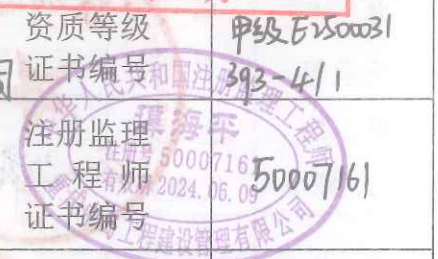 资质等级
甲级E2500031
证书编号
393-4/1
注册监理
工程师
证书编号
50007161
中华人民共和国注册监理工程师
海平
注册号5000716
有效期2024.06.09
工程建设管理有限公司